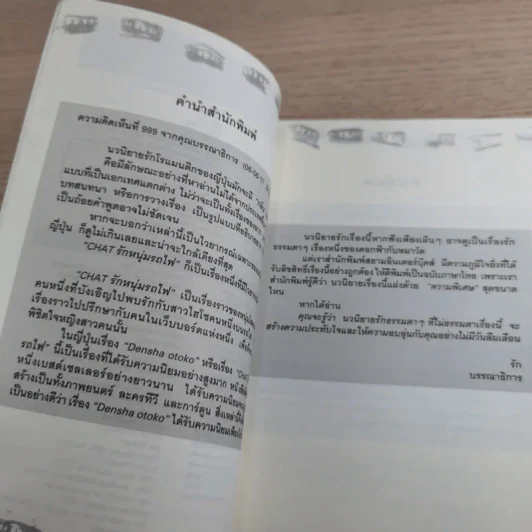 คำนำสำนักพิมพ์
ความคิดเห็นที่ 999 จากคุณบรรณาธิการ (06-06-17
นวนิยายรักโรแมนติกของญี่ปุ่นมักจะมี
คือมีลักษณะอย่างที่หาอ่านไม่ได้จากประเทศ
แบบที่เป็นเอกเทศแตกต่าง ไม่ว่าจะเป็นทั้งเรื่องของ
บทสนทนา หรือการวางเรื่อง เป็นรูปแบบที่
เป็นถ้อยคำพูดอาจไม่ชัดเจน
หากจะบอกว่าเหล่านี้เป็นไวยากรณ์เฉพาะของ
ญี่ปุ่น ก็ดูไม่เกินเลยและน่าจะใกล้เคียงที่สุด
"CHAT รักหนุ่มรถไฟ" ก็เป็นเรื่องหนึ่งที่มี
"CHAT รักหนุ่มรถไฟ" เป็นเรื่องราวของหนุ่ม
คนหนึ่งที่บังเอิญไปพบรักกับสาวไฮโซคนหนึ่งบน
เรื่องราวไปปรึกษากับคนในเว็บบอร์ดแห่งหนึ่ง เพื่อ
พิชิตใจหญิงสาวคนนั้น
ในญี่ปุ่นเรื่อง "Densha otoko" หรือเรื่อง
รถไฟ" นี้เป็นเรื่องที่ได้รับความนิยมอย่างสูงมาก
หนึ่งเบสต์เซลเลอร์อย่างยาวนาน ได้รับความนิยม
สร้างเป็นทั้งภาพยนตร์ ละครทีวี และการ์ตูน สิ่งเหล่านี้
เป็นอย่างดีว่า เรื่อง "Densha otoko" ได้รับความนิยม
นวนิยายรักเรื่องนี้หากฟังเพียงเผินๆ อาจดูเป็นเรื่องรัก
ธรรมดาๆ เรื่องหนึ่งของดอกฟ้ากับหมาวัด
แต่เราสำนักพิมพ์สยามอินเตอร์บุ๊คส์ มีความภูมิใจยิ่งที่ได้
รับลิขสิทธิ์เรื่องนี้อย่างถูกต้อง ให้ตีพิมพ์เป็นฉบับภาษาไทย เพราะเรา
สำนักพิมพ์รู้ดีว่า นวนิยายเรื่องนี้แฝงด้วย "ความพิเศษ" สุดขนาด
ไหน
หากได้อ่าน
คุณจะรู้ว่า นวนิยายรักธรรมดาๆ ที่ไม่ธรรมดาเรื่องนี้ จะ
สร้างความประทับใจและให้ความอบอุ่นกับคุณอย่างไม่มีวันลืมเลือน
รัก
บรรณาธิการ